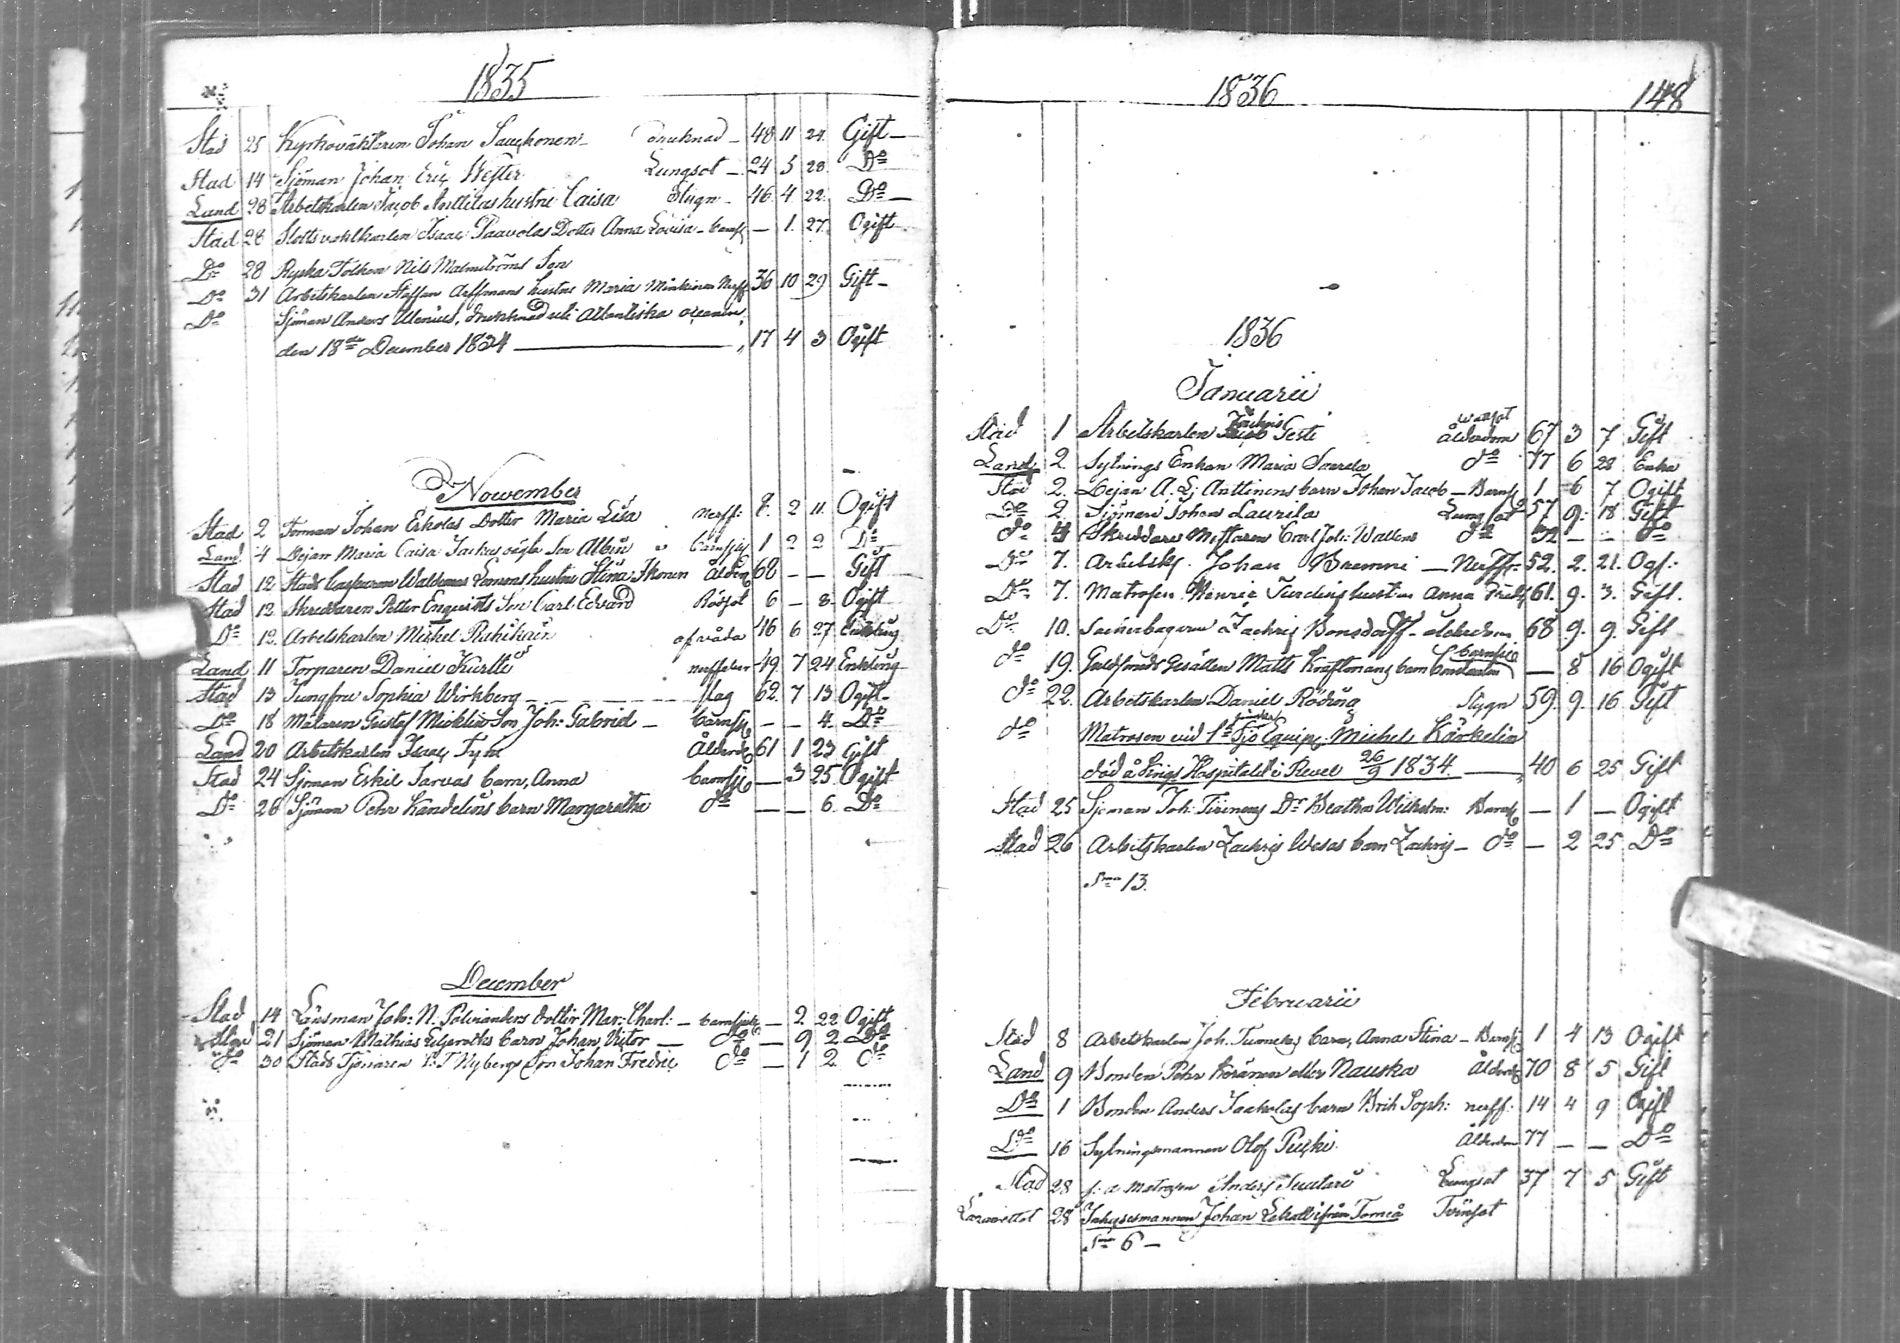 1835
Stad 25 Kyrkoväktaren Johan Sauckonen drucknad 48 11 24 Gift
Stad 14 Sjöman Johan Eric Wester Lungsot 24 5 28 Do
Land 28 Arbetskarlen Jacob Anttilas hustru Caisa Stygn 46 4 22 Do
Stad 28 Slottsvaktkarlen Isaac Paavolas Dotter Anna Lovisa barnsj — 1 27 Ogift
Do 28 Ryska Tolken Nils Malmströms Son
Do 31 Arbetskarlen Staffan hustru Maria Nerff 36 10 29 Gift
Do Sjöman Anders Ulenius, drucknad uti Atlantiska oceanen,
den 18de December 1834 17 4 3 Ogift
Nowember
Stad 2 Torman Johan Erkolas Dotter Maria Lisa nerff: 8 2 11 Ogift
Land 4 Pejan Maria Caisa Son Albin barnsju 1 2 2 Do
Stad 12 Stads hustru Stina Ikonen Ålderd 68 — — Gift
Stad 12 Skreddaren Petter Enqvists Son Carl Edvard Rödsot 6 — 8 Ogift
Do 12 Arbetskarlen Mickel Rahikain af våda 46 6 27 Enkling
Land 11 Torparen Daniel Kurtti nerffeber 49 7 24 Enkling
Stad 13 Jungfru Sophia Wirkberg slag 62 7 13 Ogift
Do 18 Målaren Gustaf Micklin Son Joh: Gabriel barnsj — — 4 Do
Land 20 Arbetskarlen Isac Tyni Ålderd 61 1 23 Gift
Stad 24 Sjöman Eskil Sarvas barn, Anna barnsj — 3 25 Ogift
Do 26 Sjöman Pehr Kandelins barn Margaretha do — — 6 Do
December
Stad 14 Länsman Joh: N. dotter Mar: Charl: barnsjuk — 2 22 Ogift
Stad 21 Sjöman Mathias barn Johan Victor do — 9 2 Do
do 30 Stads Tjenaren Nybergs Son Johan Fredric do — 1 2 do
1836 148
1836
Januarii
wattsot
Stad 1 Arbetskarlen Zachris Testi ålderdom 67 3 7 Gift
Land 2 Sytnings Enkan Maria Saarela do 77 6 28 Enka
Stad 2 Pejan A. L: Anttinens barn Johan Jacob Barnsj 1 6 7 Ogift
Do 2 Sjöman Johan Laurila Lungsot 57 9 18 Gift
do 4 Skreddare Mästaren Carl Joh: Wallens do 32 — — do
do 7 Arbetsk. Johan Bremmi Nerff. 52 2 21 Ogf.
Do 7 Matrosen Henric hustru Anna 61 9 3 Gift
Do 10 Sockerbagaren Zachris Bonsdorff ålderdom 68 9 9 Gift
do 19 Guldsmeds Gesällen Matts Kraftmans barn Constantin barnsju — 8 16 Ogift
do 22 Arbetskarlen Daniel Röding Stygn 59 9 16 Gift
do Matrosen vid 1sta finska Sjö Equip: Michel Kärkelin
död å Krigs Hospitalet i Revel 26/9 1834 40 6 25 Gift
Stad 25 Sjöman Joh: Dr Beatha Wilhelm: Barnsj — 1 — Ogift
Stad 26 Arbetskarlen Zachris Wesas barn Zachris do — 2 25 Do
Sma 13.
Februarii
Stad 8 Arbetskarlen Joh. barn, Anna Stina Barnsj 1 4 13 Ogift
Land 9 Bonden Pehr Keränen eller Nauska Ålderd 70 8 5 Gift
Do 1 Bonden Anders Jaakolas barn Brit Soph: nerff: 14 4 9 Ogift
Do 16 Sytningsmannen Olof Pucki Ålderdom 77 — — Do
Stad 28 f. d. Matrosen Anders Lungsot 37 7 5 Gift
Lazarettet 28 Johan ifrån Torneå Tvinsot
Sma 6